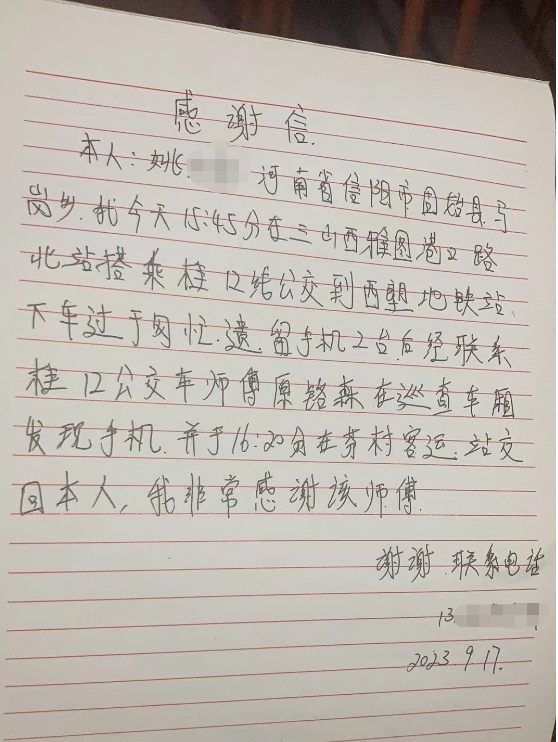 感谢信.
本人:姚 河南省信阳市固始县马
岗乡.我今天15:45分在三山西雅图港口路
北站搭乘桂12线公交到西塱地铁站.
下车过于匆忙.遗留手机2台后经联系
桂12公交车师傅原铭森在巡查车厢
发现手机.并于16:20分在芳村客运.站交
回本人,我非常感谢该师傅.
谢谢.联系电话
13.
2023.9.17.